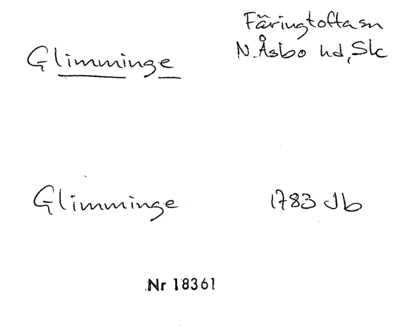 Glimminge
Färingtofta sn
N. Åsbo hd, Sk
Glimminge
1783 Jb
Nr 18361